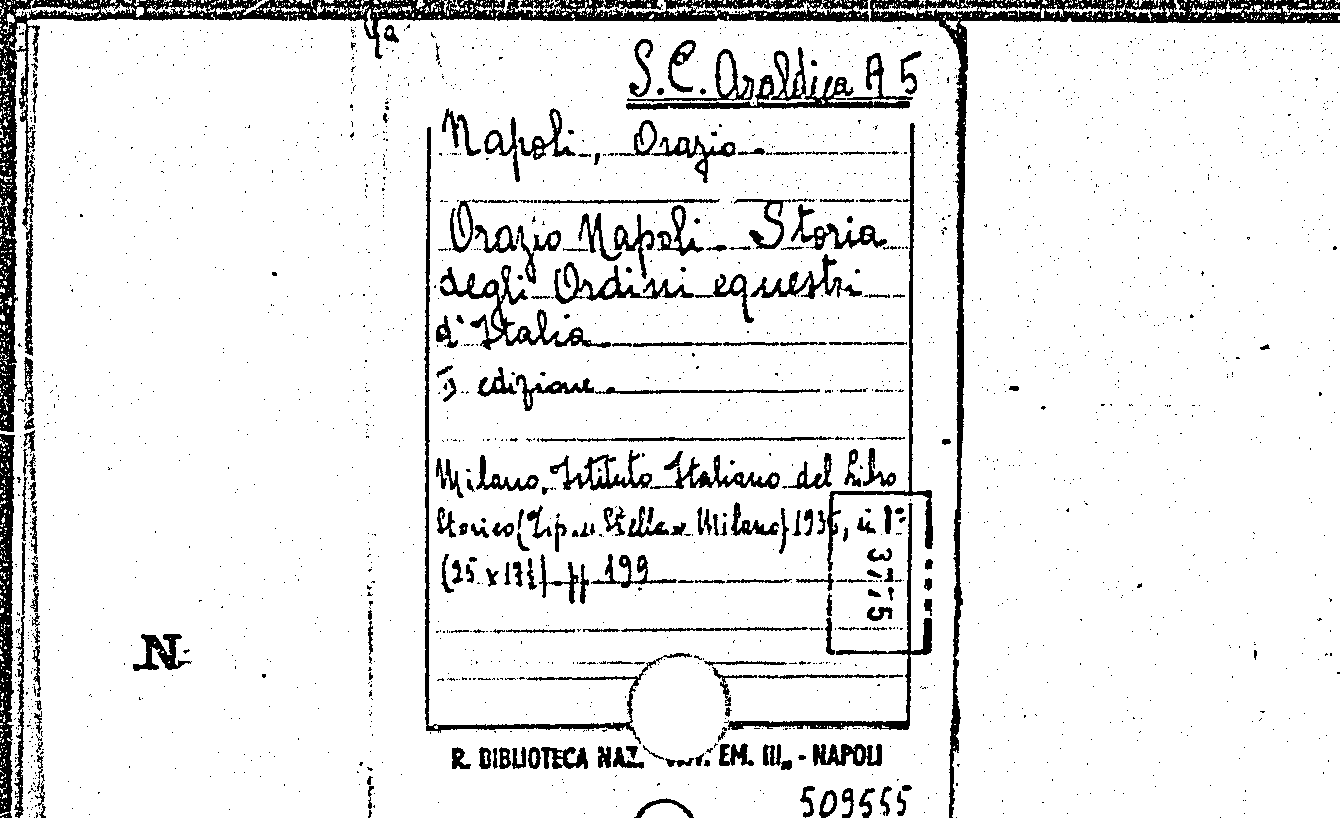 S.C. Araldica A 5
Napoli, Orazio.
Orazio Napoli. Storia
degli Ordini equestri
d'Italia.
edizione.
Milano, Istituto Italiano del Libro
Storico (Tip. "Stella" Milano) 1935, in 8°
(25 x 17½) pp 199
3775
N
R. BIBLIOTECA NAZ. EM. III„ - NAPOLI
509555